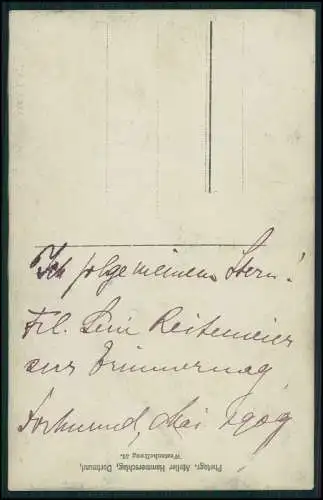 Ich folge meinem Stern!
Frl. Leni Reitemeier
zur Erinnerung
Dortmund, Mai 1909
Photogr. Atelier Hammerschlag, Dortmund,
Westenhellweg 58.